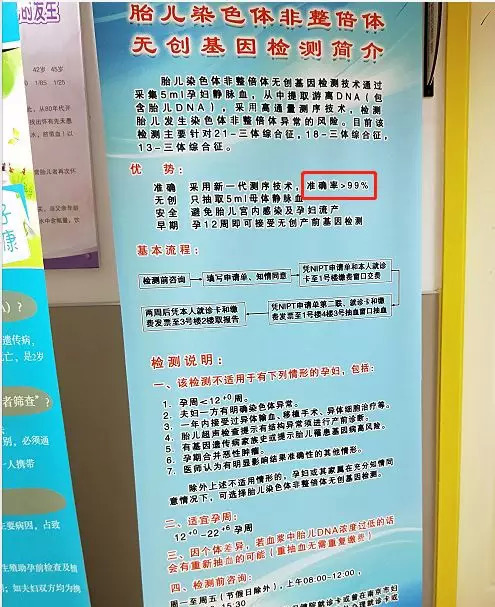 的发生
42岁 45岁
1/85 1/25
胎儿染色体非整倍体
无创基因检测简介
胎儿染色体非整倍体无创基因检测技术通过
采集5ml孕妇静脉血，从中提取游离DNA(包
含胎儿DNA)，采用高通量测序技术，检测
胎儿发生染色体非整倍体异常的风险。目前该
检测主要针对21-三体综合征，18-三体综合征，
13-三体综合征。
优 势：
准确 采用新一代测序技术，准确率>99%
无创 只抽取5ml母体静脉血
安全 避免胎儿宫内感染及孕妇流产
早期 孕12周即可接受无创产前基因检测
基本流程：
检测前咨询
填写申请单、知情同意
凭NIPT申请单和本人就诊
卡至1号楼缴费窗口交费
凭NIPT申请单第二联、就诊卡和缴
费发票至1号楼4楼3号抽血窗口抽血
两周后凭本人就诊卡和缴
费发票至3号楼2楼取报告
检测说明：
一、该检测不适用于有下列情形的孕妇，包括：
1. 孕周<12+0周。
2. 夫妇一方有明确染色体异常。
3. 一年内接受过异体输血、移植手术、异体细胞治疗等。
4. 胎儿超声检查提示有结构异常须进行产前诊断。
5. 有基因遗传病家族史或提示胎儿罹患基因病高风险。
6. 孕期合并恶性肿瘤。
7. 医师认为有明显影响结果准确性的其他情形。
除外上述不适用情形的，孕妇或其家属在充分知情同
意情况下，可选择胎儿染色体非整倍体无创基因检测。
二、适宜孕周：
12+0-22+6孕周
三、因个体差异，若血浆中胎儿DNA浓度过低的话
会有重新抽血的可能（重抽血无需重复缴费）
四、检测前咨询：
周一至周五（节假日除外），上午08:00-12:00，
15:30
康
A）?
遗传病，
亡，是2岁
者筛查”？
别，必须通
一人携带
主要病因，占致
生殖助孕前检查及植
；如夫妇双方均为携